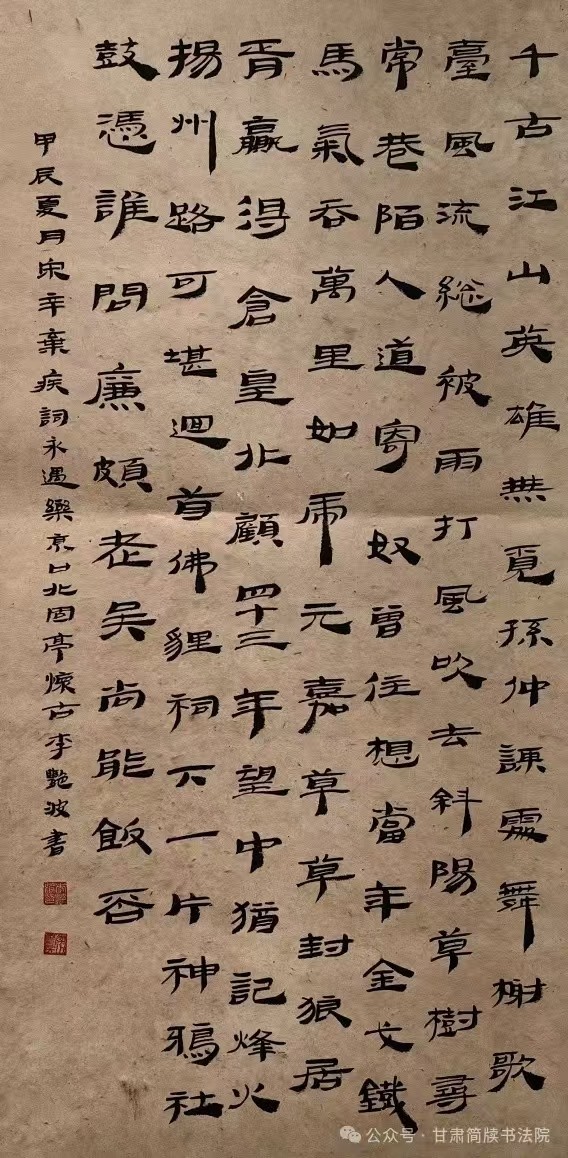 千古江山英雄無覓孫仲謀處舞榭歌
臺風流総被雨打風吹去斜陽草樹尋
常巷陌人道寄奴曾住想當年金戈鐵
馬氣吞萬里如虎元嘉草草封狼居
胥贏得倉皇北顧四十三年望中猶記烽火
揚州路可堪迴首佛貍祠下一片神鴉社
鼓憑誰問廉頗老矣尚能飯否
甲辰夏月宋辛棄疾詞永遇樂京口北固亭懷古李艷波書
公众号 · 甘肃简牍书法院